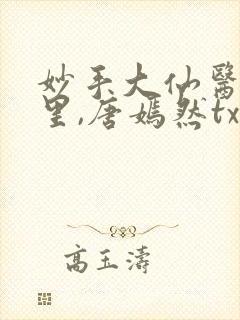 妙手大仙醫
里,唐嫣然tx
高玉濤